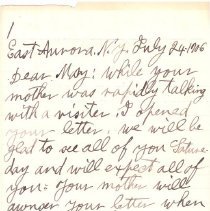 1
East Aurora, N.Y. July 24 1906
Dear May: While your
mother was rapidly talking
with a visiter, I opened
your letter. We will be
glad to see all of you
day and will expect all of
you. Your mother will
awnser your letter when